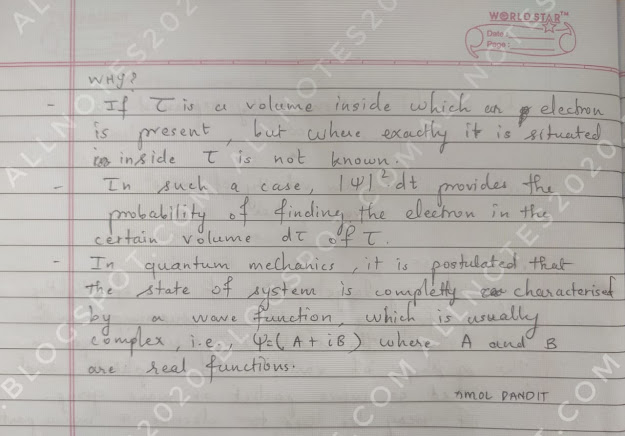 WORLD STAR™
Date :
Page :
WHY?
- If τ is a volume inside which an electron
is present, but where exactly it is situated
inside τ is not known.
- In such a case, |ψ|² dt provides the
probability of finding the electron in the
certain volume dτ of τ.
- In quantum mechanics, it is postulated that
the state of system is completly characterised
by a wave function, which is usually
complex, i.e., ψ=(A + iB) where A and B
are real functions.
AMOL PANDIT